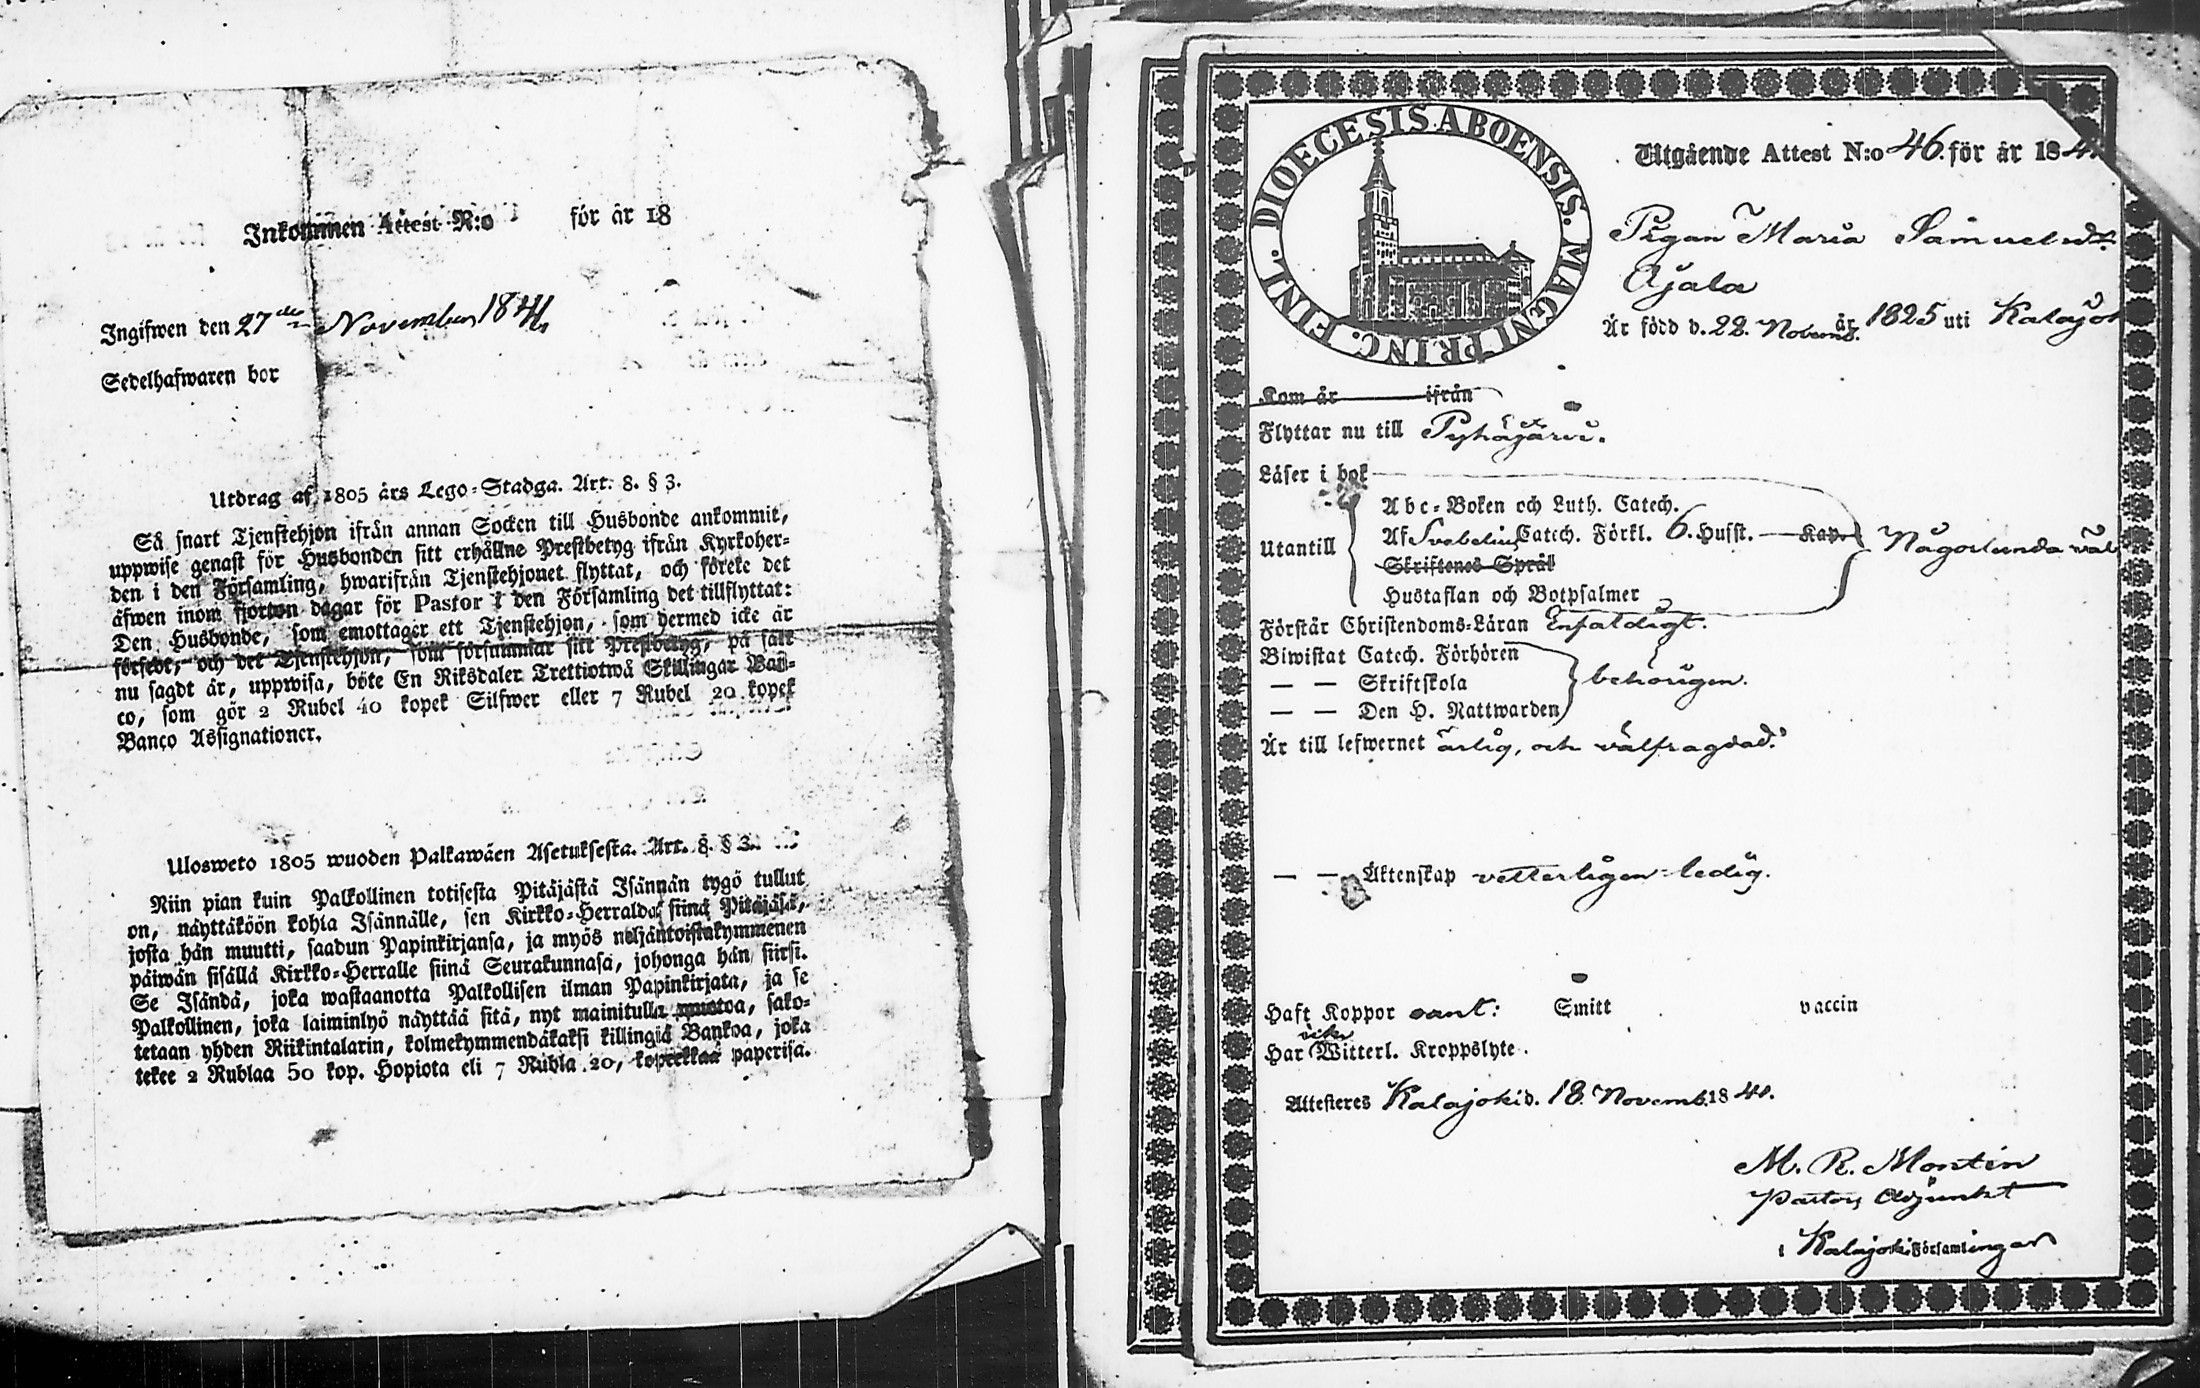 Inkommen Attest N:o för år 18
Ingifwen den 27de November 1841
Sedelhafwaren bor
Utdrag af 1805 års Lego-Stadga. Art. 8. § 3.
Så snart Tjenstehjon ifrån annan Socken till Husbonde ankommit,
uppwise genast för Husbonden sitt erhållne Prestbetyg ifrån Kyrkoher-
den i den Församling, hwarifrån Tjenstehjonet flyttat, och förete det
äfwen inom fjorton dagar för Pastor i den Församling det tillflyttat:
Den Husbonde, som emottager ett Tjenstehjon, som dermed icke är
försedt, och det Tjenstehjon, som försummar sitt Prestbetyg, på sätt
nu sagdt är, uppwisa, böte En Riksdaler Trettiotwå Skillingar Ban-
co, som gör 2 Rubel 40 kopek Silfwer eller 7 Rubel 20 kopek
Banco Assignationer.
Ulosweto 1805 wuoden Palkawäen Asetuksesta. Art. 8. § 3.
Niin pian kuin Palkollinen totisesta Pitäjästä Isännän tygö tullut
on, näyttäköön kohta Isännälle, sen Kirkko-Herralda siinä Pitäjäsä,
josta hän muutti, saadun Papinkirjansa, ja myös neljäntoistakymmenen
päiwän sisällä Kirkko-Herralle siinä Seurakunnasa, johonga hän siirsi.
Se Isändä, joka wastaanotta Palkollisen ilman Papinkirjata, ja se
Palkollinen, joka laiminlyö näyttää sitä, nyt mainitulla muotoa, sako-
tetaan yhden Riikintalarin, kolmekymmendäkaksi killingiä Bankoa, joka
tekee 2 Rublaa 50 kop. Hopiota eli 7 Rubla 20, kopeekkaa paperisa.
DIOECESIS ABOENSIS. MAGNI PRINC. FINL.
Utgående Attest N:o 46. för år 184
Pigan Maria Samuelsdr
Ajala
Är född d. 22. Novemb. år 1825 uti Kalajok
Kom år ifrån
Flyttar nu till Pyhäjärvi.
Läser i bok
Abc-Boken och Luth. Catech.
Utantill Af Svebelius Catech. Förkl. 6. Husst. Kap. Någorlunda väl
Skriftenes Språk
Hustaflan och Botpsalmer
Förstår Christendoms-Läran Enfaldigt.
Biwistat Catech. Förhören
— — Skriftskola behörigen.
— — Den H. Nattwarden
Är till lefwernet ärlig, och välfragdad.
— — Äktenskap vetterligen ledig.
Haft Koppor sant: Smitt vaccin
Har icke Witterl. Kroppslyte.
Attesteres Kalajoki d. 18. Novemb. 1841.
M. R. Montin
Pastors Adjunkt
i Kalajoki Församlingar